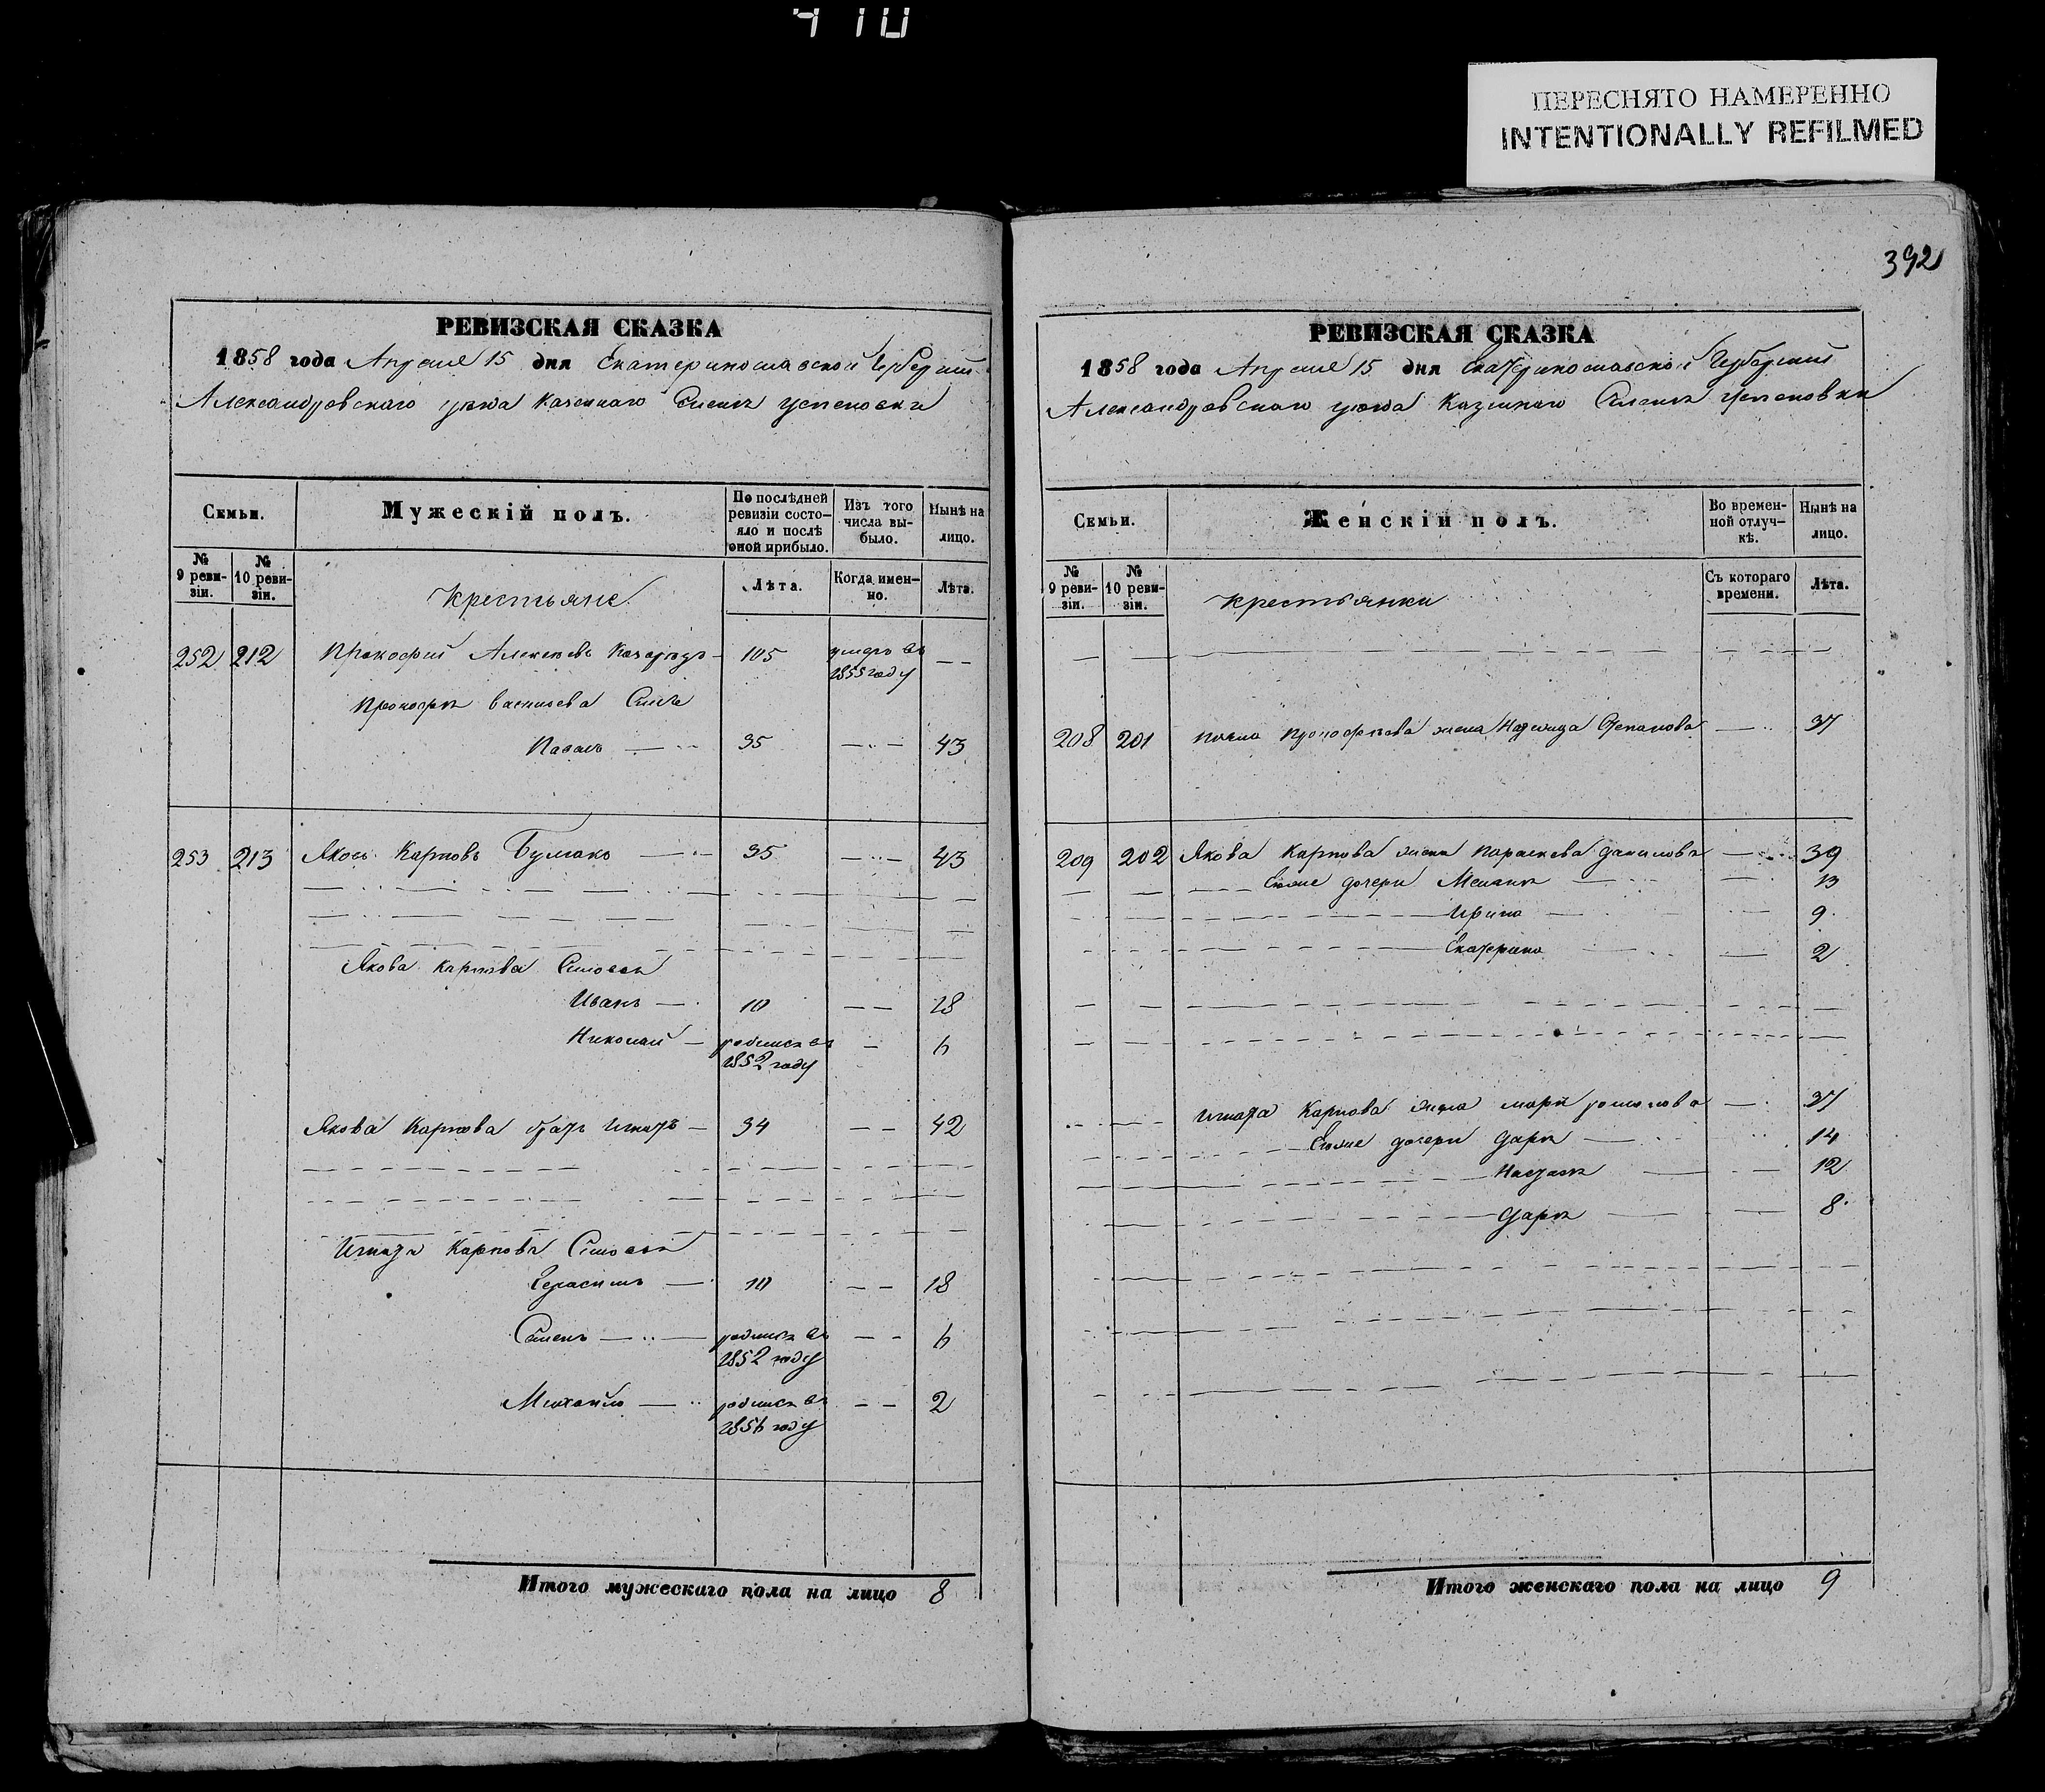 410
ПЕРЕСНЯТО НАМЕРЕННО
INTENTIONALLY REFILMED
392
РЕВИЗСКАЯ СКАЗКА
1858 года Апреля 15 дня Екатеринославской Губернии
Александровскаго уезда Казеннаго Селенія Успеновки
Семьи.
Мужескій полъ.
По послѣдней ревизіи состо-яло и послѣ оной прибыло.
Изъ того числа вы-было.
Нынѣ на лицо.
№ 9 реви-зіи.
№ 10 реви-зіи.
Крестьяне.
Лѣта.
Когда имен-но.
Лѣта.
252 212 Прокофий Алексѣевъ 105 умеръ въ 1855 году
Прокофія Сынъ
Павелъ 35 43
253 213 Яковъ Карповъ 35 43
Якова Карпова Сыновья
Иванъ 10 18
Николай родился въ 1852 году 6
Якова Карпова братъ Игнатъ 34 42
Игната Карпова Сыновья
Герасимъ 10 18
Семенъ родился въ 1852 году 6
Михайло родился въ 1856 году 2
Итого мужескаго пола на лицо 8
РЕВИЗСКАЯ СКАЗКА
1858 года Апреля 15 дня Екатеринославской Губернии
Александровскаго уезда Казеннаго Селенія Успеновки
Семьи.
Женскій полъ.
Во времен-ной отлуч-кѣ.
Нынѣ на лицо.
№ 9 реви-зіи.
№ 10 реви-зіи.
Крестьянки
Съ котораго времени.
Лѣта.
208 201 Павла Прокофьева жена Надежда Степанова 37
209 202 Якова Карпова жена Параскева Данилова 39
дочери Меланья 13
Ирина 9
Екатерина 2
Игната Карпова жена Марья 37
дочери Дарья 14
Настасья 12
Дарья 8
Итого женскаго пола на лицо 9